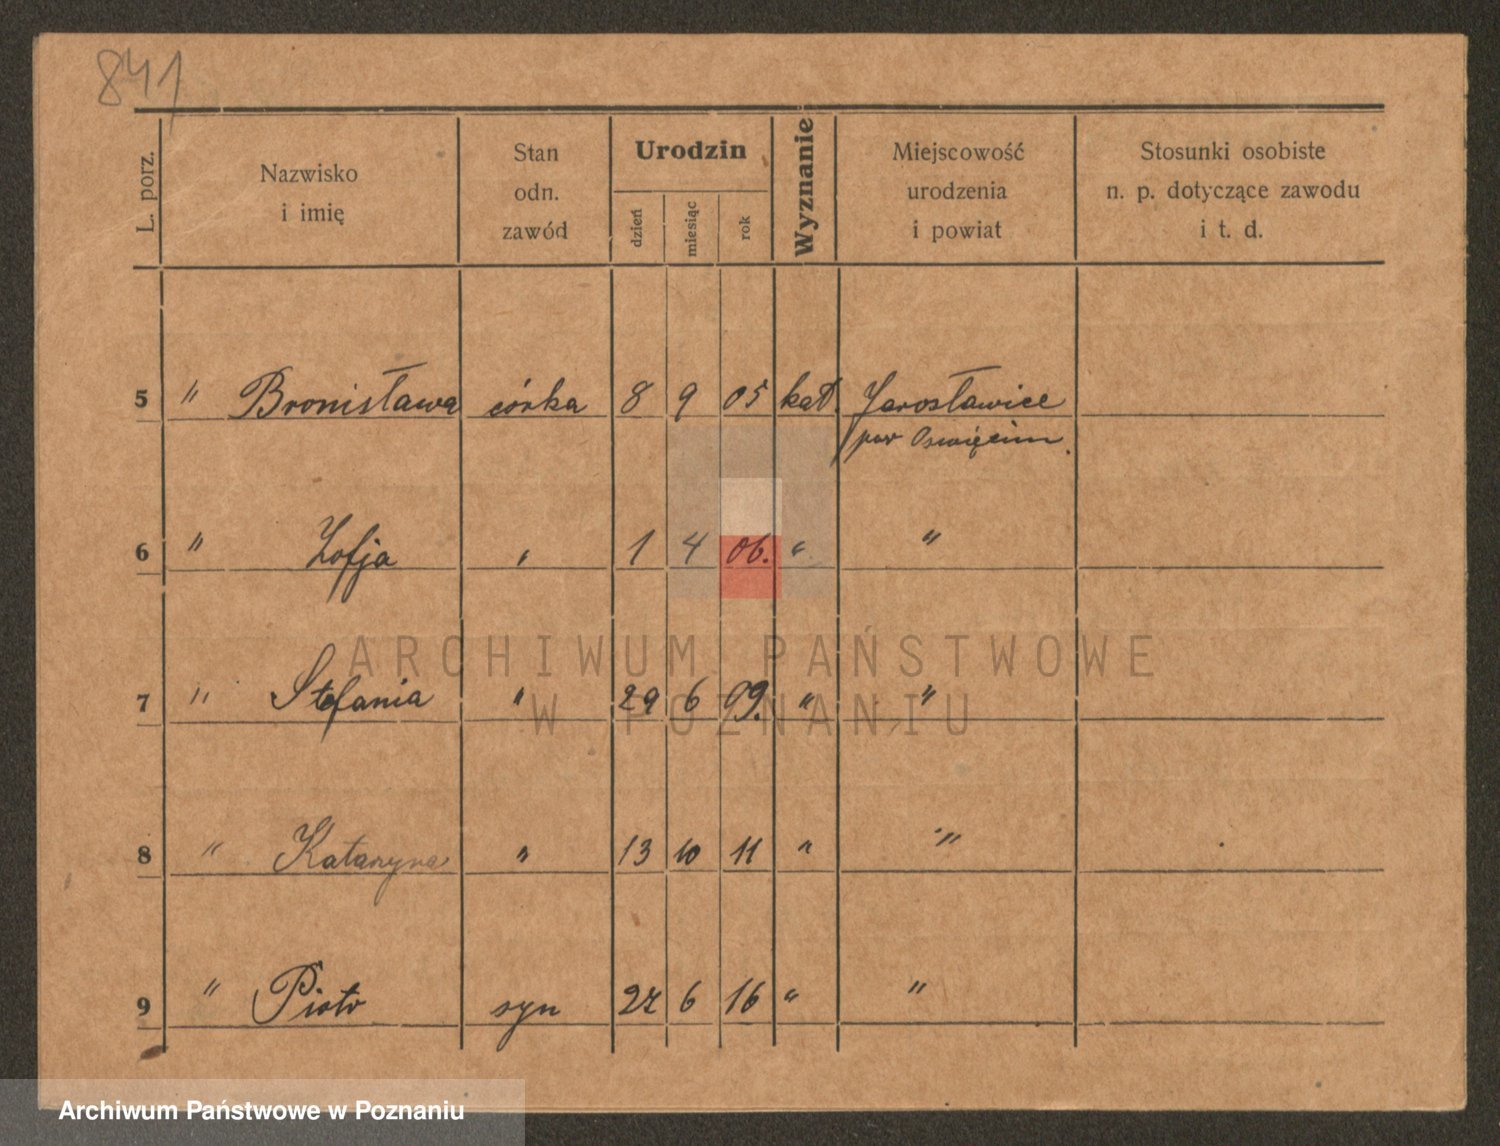 841
L. porz.
Nazwisko
i imię
Stan
odn.
zawód
Urodzin
dzień
miesiąc
rok
Wyznanie
Miejscowość
urodzenia
i powiat
Stosunki osobiste
n. p. dotyczące zawodu
i t. d.
5 " Bronisława córka 8 9 05 kat. Jarosławice
pow Oswięcim.
6 " Zofja " 1 4 06. " "
ARCHIWUM PAŃSTWOWE
7 " Stefania " 29 6 09. " "
W POZNANIU
8 " Katarzyna " 13 10 11 " "
9 " Piotr syn 27 6 16 " "
Archiwum Państwowe w Poznaniu